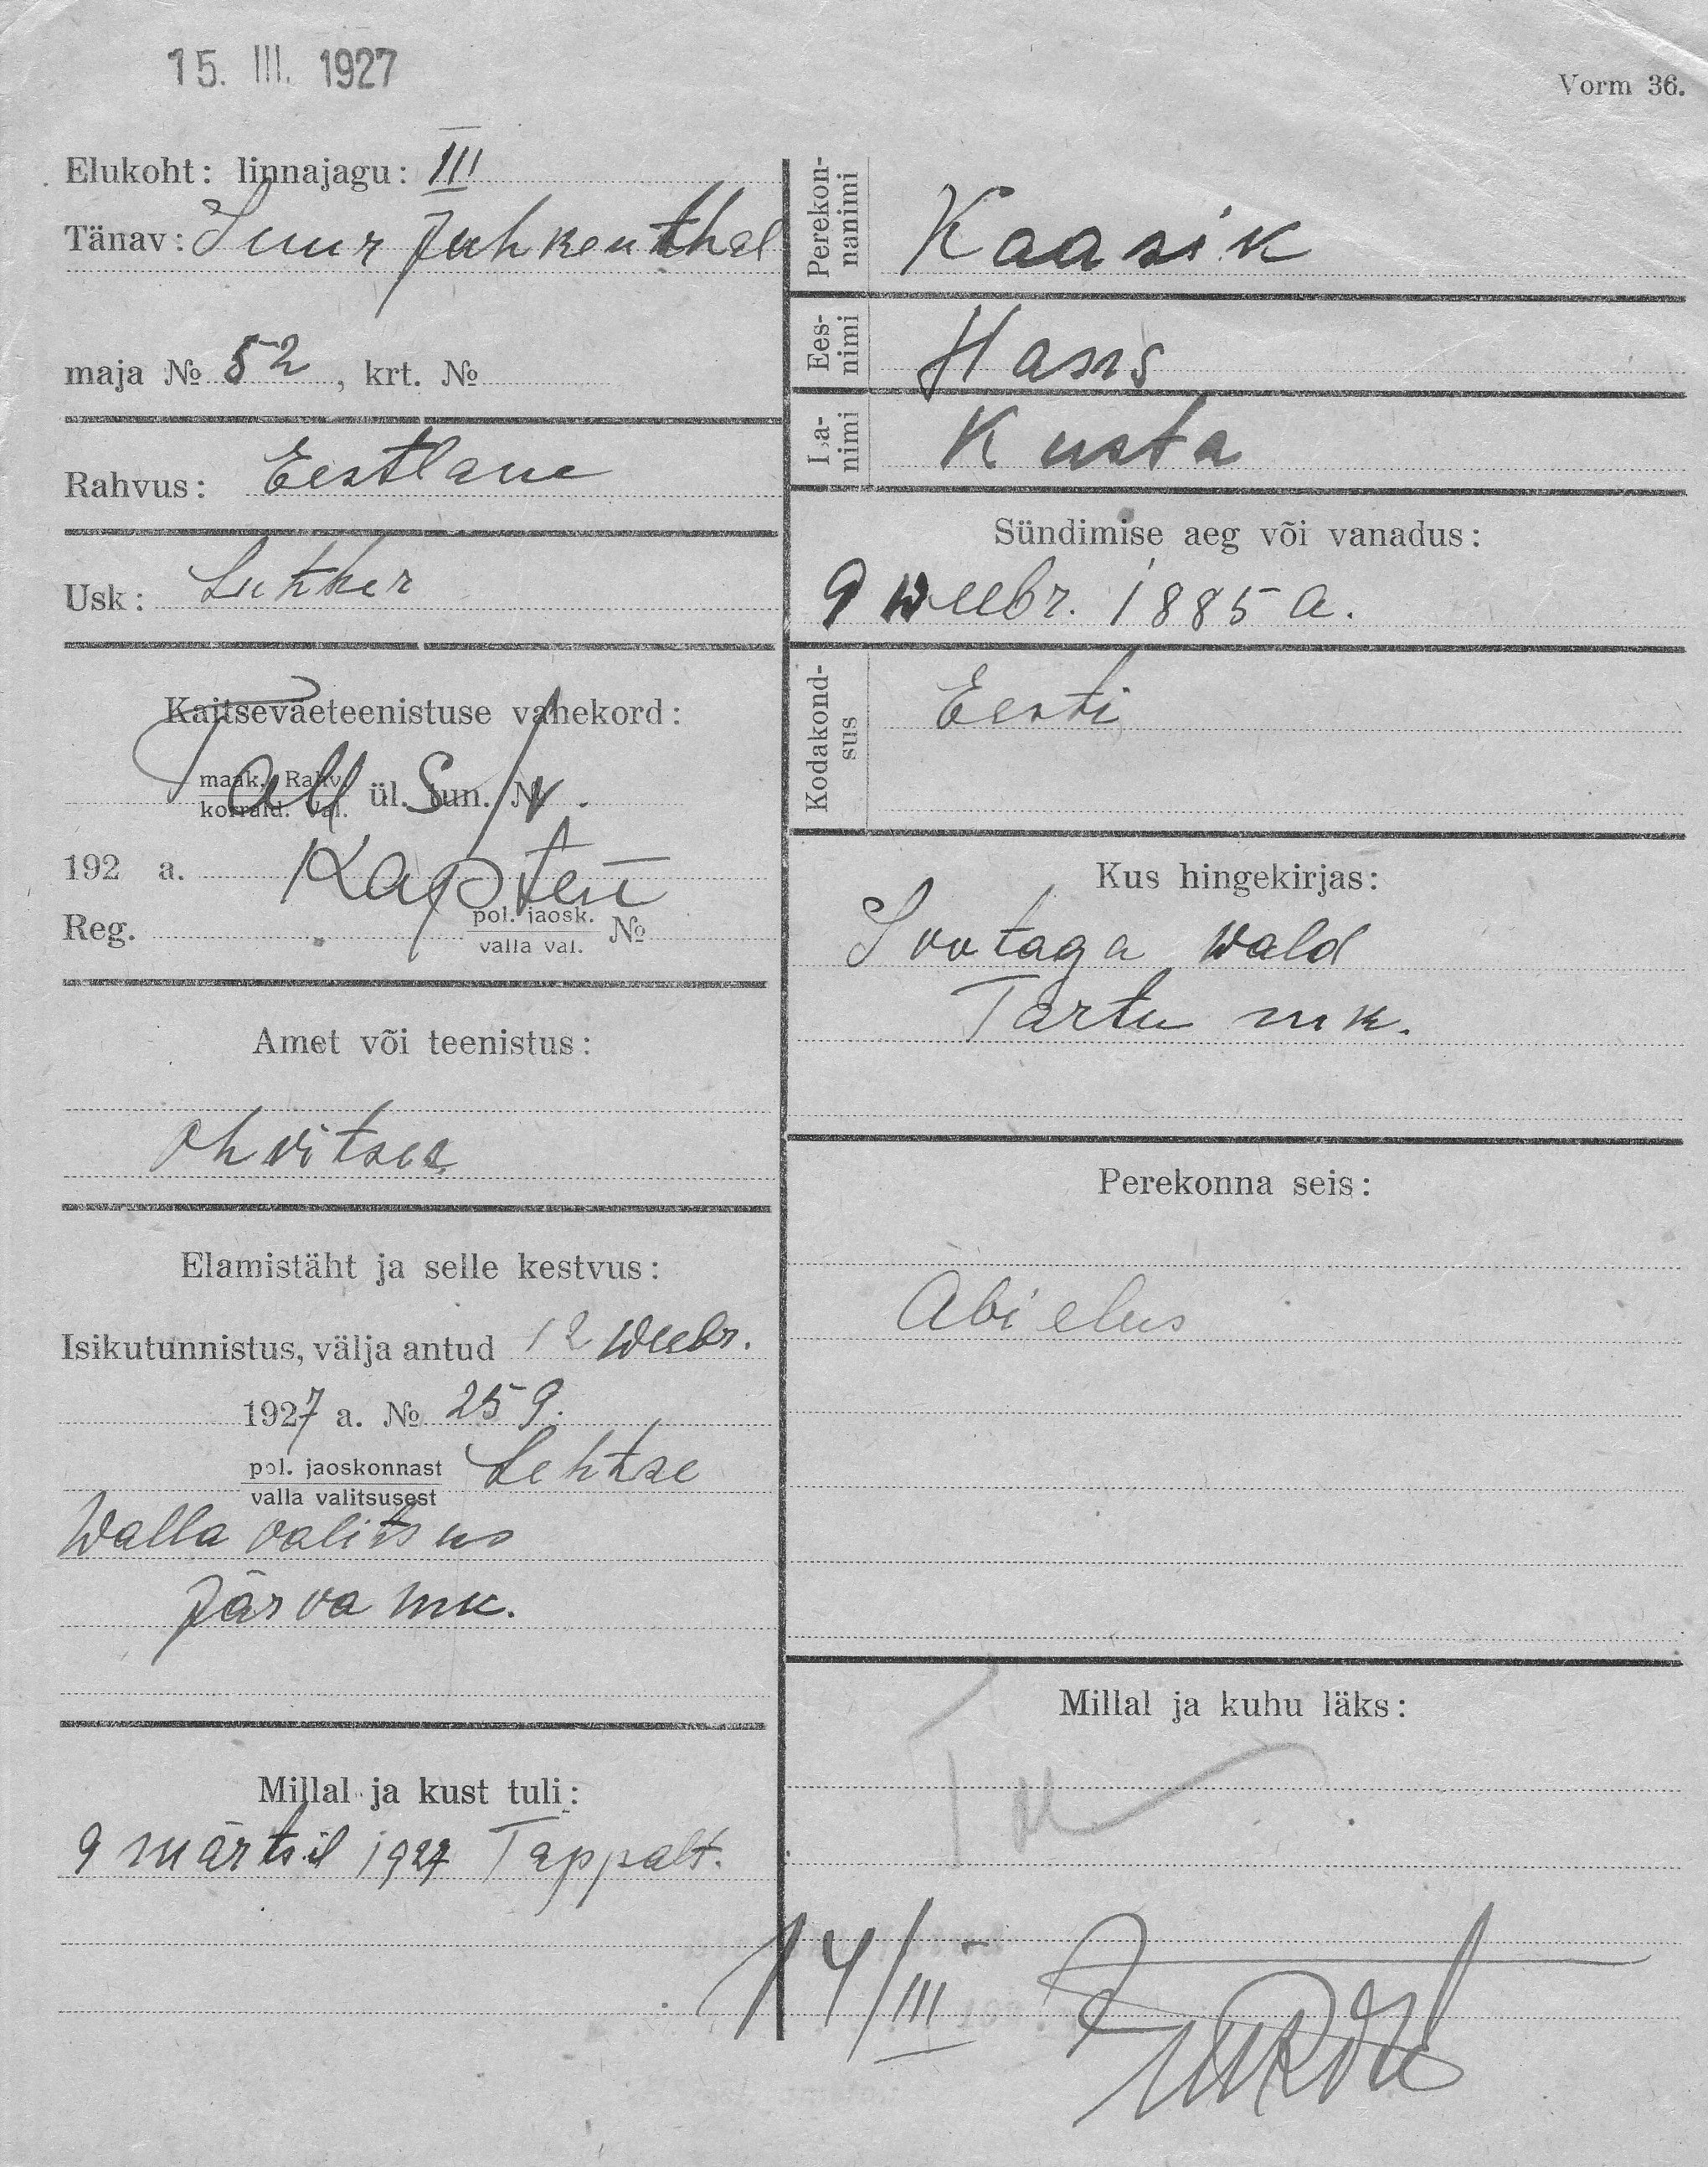 15. III. 1927
Vorm 36.
Elukoht: linnajagu: III
Tänav: Suur Juhkenthal
maja № 52, krt. №
Rahvus: Eestlane
Usk: Luther
Kaitseväeteenistuse vahekord:
maak. Rahv. ül. Tun. №
korrald. Val.
192 a. Kapten
Reg. pol. jaosk. №
valla val.
Amet või teenistus:
Ohvitser
Elamistäht ja selle kestvus:
Isikutunnistus, välja antud 12 weebr.
1927 a. № 259.
pol. jaoskonnast Lehtse
valla valitsusest
Walla valitsus
Järva mk.
Millal ja kust tuli:
9 märtsil 1927 Tappalt.
Perekon-
nanimi Kaasik
Ees-
nimi Hans
Isa-
nimi Kusta
Sündimise aeg või vanadus:
9 weebr. 1885 a.
Kodakond-
sus Eesti
Kus hingekirjas:
Sootaga wald
Tartu mk.
Perekonna seis:
Abielus
Millal ja kuhu läks:
14/III